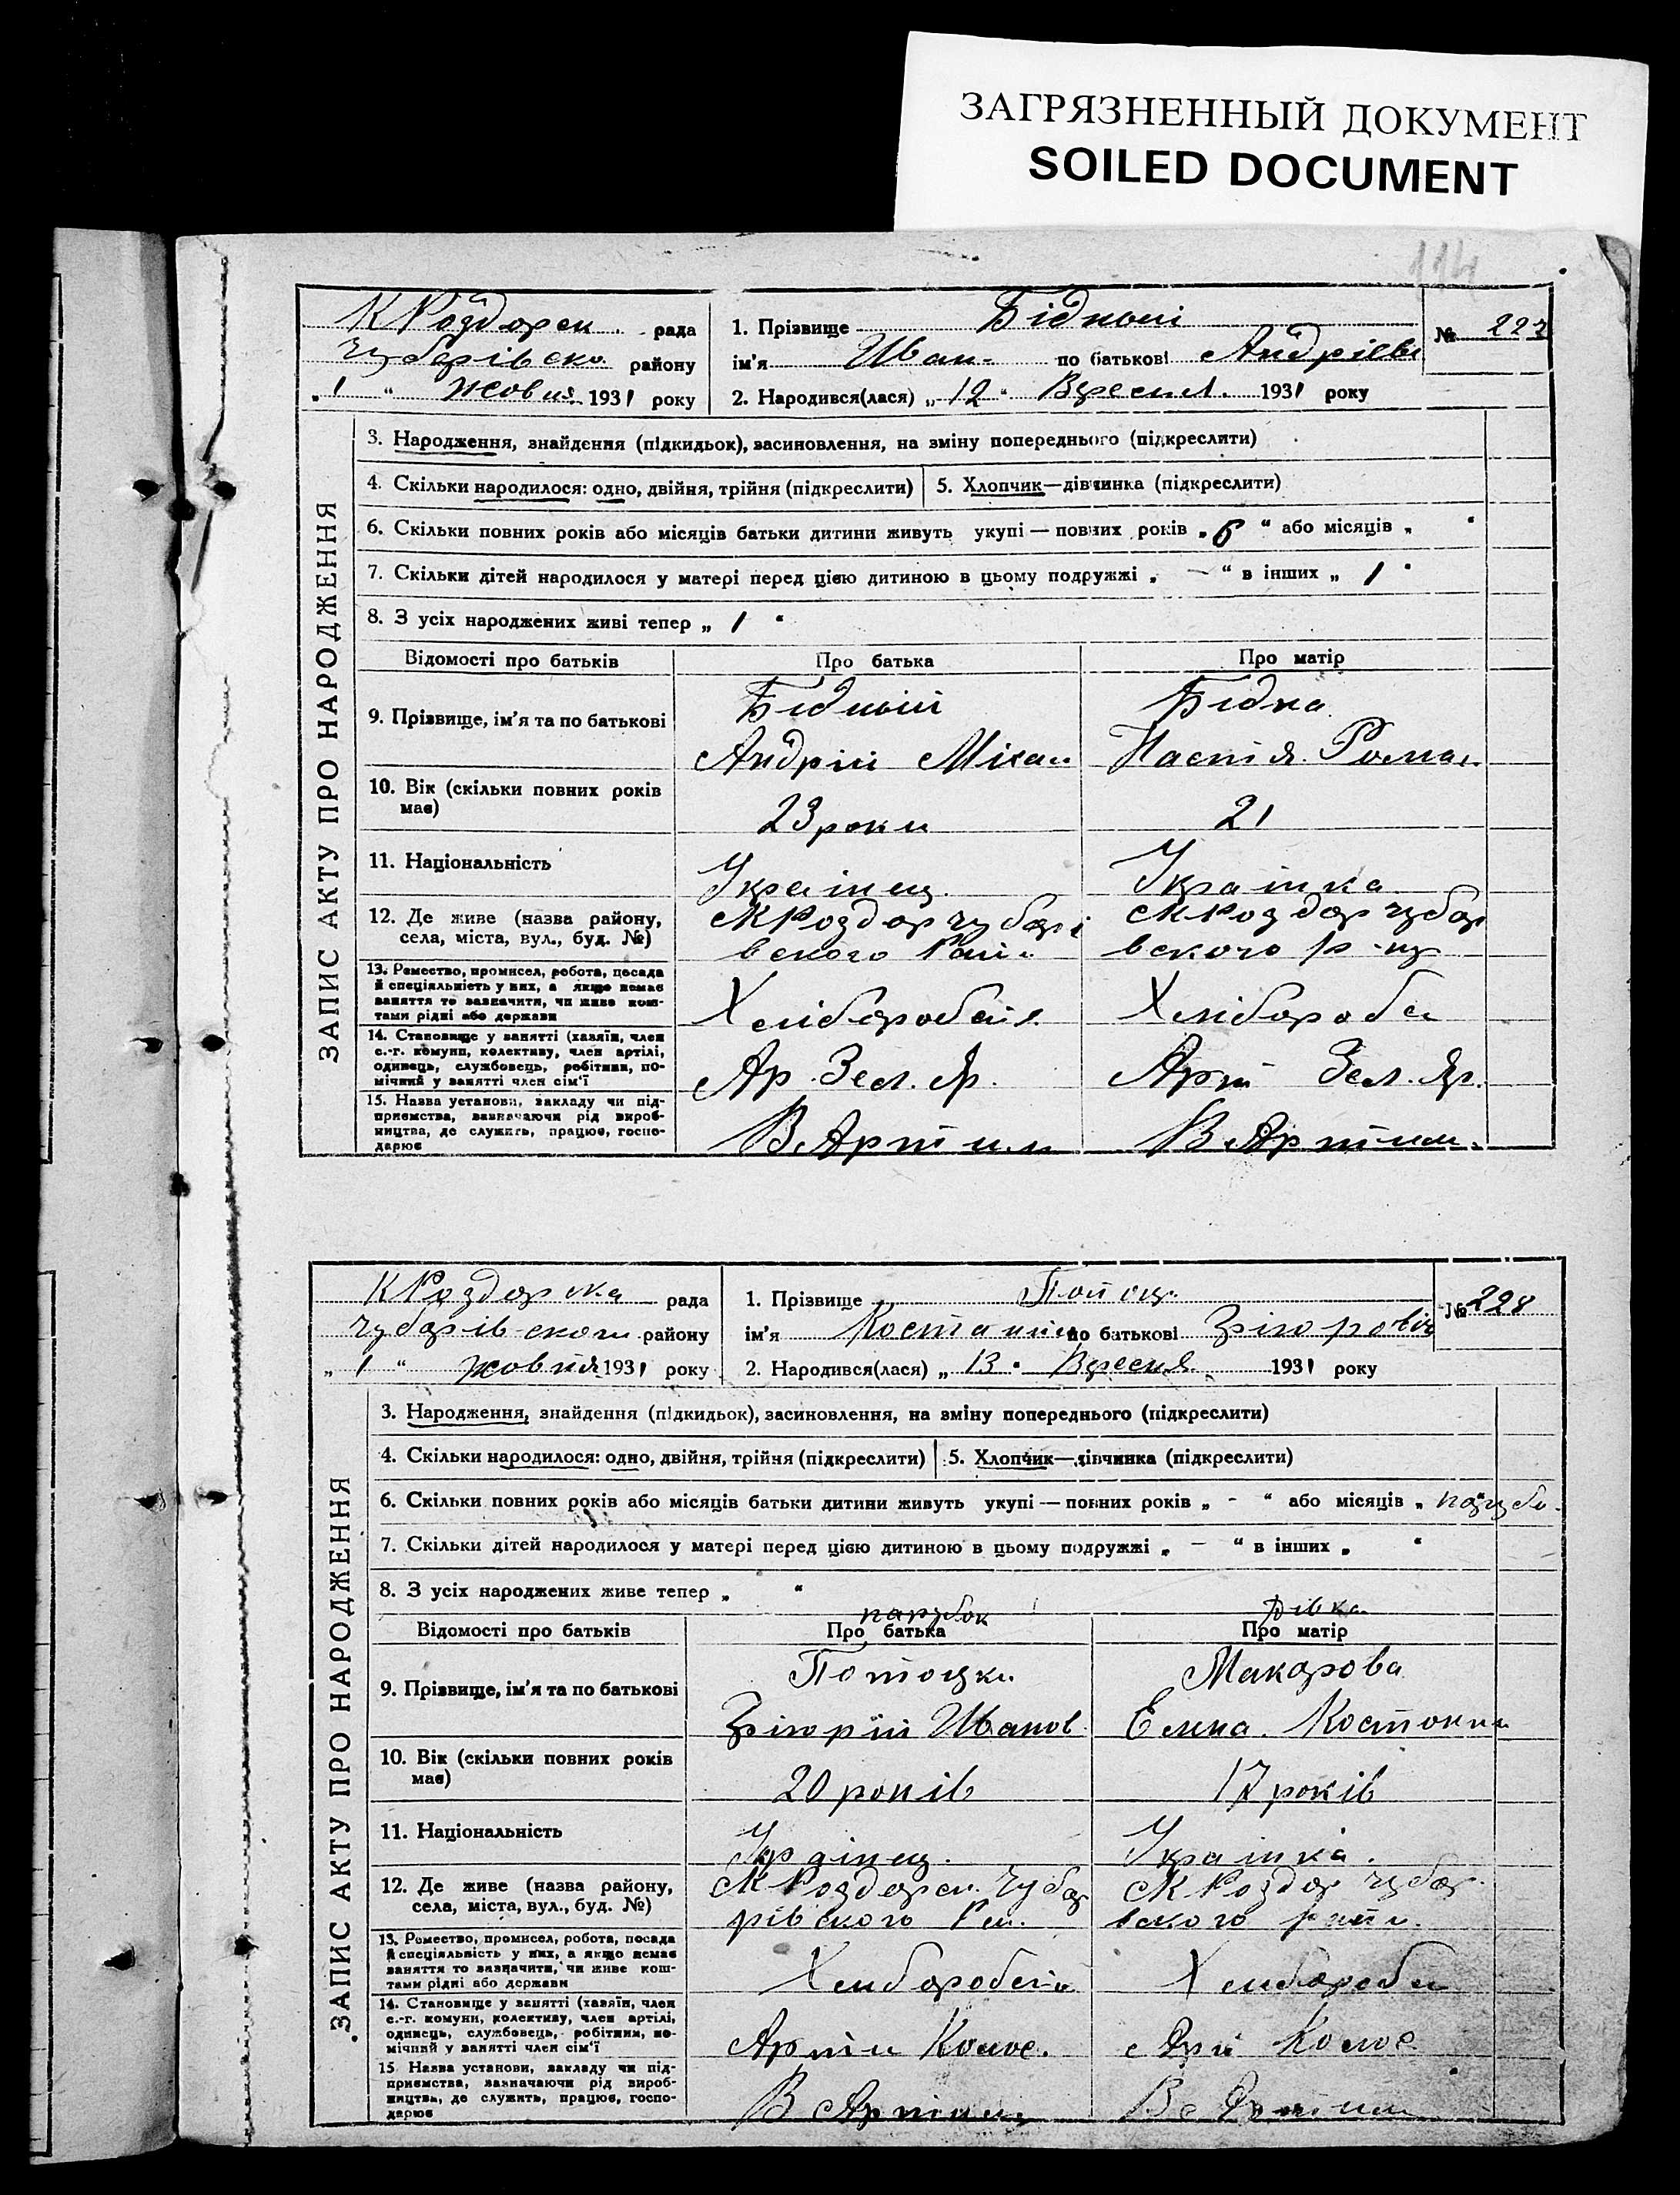 ЗАГРЯЗНЕННЫЙ ДОКУМЕНТ
SOILED DOCUMENT
114
ЗАПИС АКТУ ПРО НАРОДЖЕННЯ
К Роздорск рада
Чубарівско району
„ 1 “ жовтня 1931 року
1. Прізвище Бідный
ім'я Иван по батькові Андрієв
№ 227
2. Народився(лася) „ 12 “ Вересня 1931 року
3. Народження, знайдення (підкидьок), засиновлення, на зміну попереднього (підкреслити)
4. Скільки народилося: одно, двійня, трійня (підкреслити)
5. Хлопчик—дівчинка (підкреслити)
6. Скільки повних років або місяців батьки дитини живуть укупі — повних років „ 6 “ або місяців „ “
7. Скільки дітей народилося у матері перед цією дитиною в цьому подружжі „ — “ в інших „ 1 “
8. З усіх народжених живі тепер „ 1 “
Відомості про батьків Про батька Про матір
9. Прізвище, ім'я та по батькові
Бідный Бідна
Андрій Міхай Настя Роман
10. Вік (скільки повних років має)
23 роки 21
11. Національність
Українец Українка
12. Де живе (назва району, села, міста, вул., буд. №)
с К Роздор Чубарі с К Роздор Чубар
вского Рай вского р-ну
13. Ремество, промисел, робота, посада
й спеціяльність у них, а якщо немає
заняття то зазначити, чи живе кош-
тами рідні або держави
Хліборобст Хлібороб
14. Становище у занятті (хазяїн, член
с.-г. комуни, колективу, член артілі,
одинець, службовець, робітник, по-
мічний у занятті член сім'ї
Ар. Зел. Яр. Арт Зел. Яр.
15. Назва установи, закладу чи під-
приємства, зазначаючи рід вироб-
ництва, де служить, працює, госпо-
дарює
В Артили В Артили
ЗАПИС АКТУ ПРО НАРОДЖЕННЯ
К Роздорска рада
Чубарівского району
„ 1 “ жовтня 1931 року
1. Прізвище Потоц
ім'я Костантин по батькові Грігоровіч
№ 228
2. Народився(лася) „ 13 “ Вересня 1931 року
3. Народження, знайдення (підкидьок), засиновлення, на зміну попереднього (підкреслити)
4. Скільки народилося: одно, двійня, трійня (підкреслити)
5. Хлопчик—дівчинка (підкреслити)
6. Скільки повних років або місяців батьки дитини живуть укупі — повних років „ - “ або місяців „
7. Скільки дітей народилося у матері перед цією дитиною в цьому подружжі „ — “ в інших „ “
8. З усіх народжених живе тепер „ “
парубок дівка
Відомості про батьків Про батька Про матір
9. Прізвище, ім'я та по батькові
Потоцки Макарова
Грігорій Иванов Елена Костонтин
10. Вік (скільки повних років має)
20 років 17 років
11. Національність
Українец Українка
12. Де живе (назва району, села, міста, вул., буд. №)
с К Роздорск Чуба с К Роздор Чубар
рівского вского
13. Ремество, промисел, робота, посада
й спеціяльність у них, а якщо немає
заняття то зазначити, чи живе кош-
тами рідні або держави
Хлібороб Хлібороб
14. Становище у занятті (хазяїн, член
с.-г. комуни, колективу, член артілі,
одинець, службовець, робітник, по-
мічний у занятті член сім'ї
Артіл Колос. Арті Колос
15 Назва установи, закладу чи під-
приємства, зазначаючи рід вироб-
ництва, де служить, працює, госпо-
дарює
В Артили В Артили